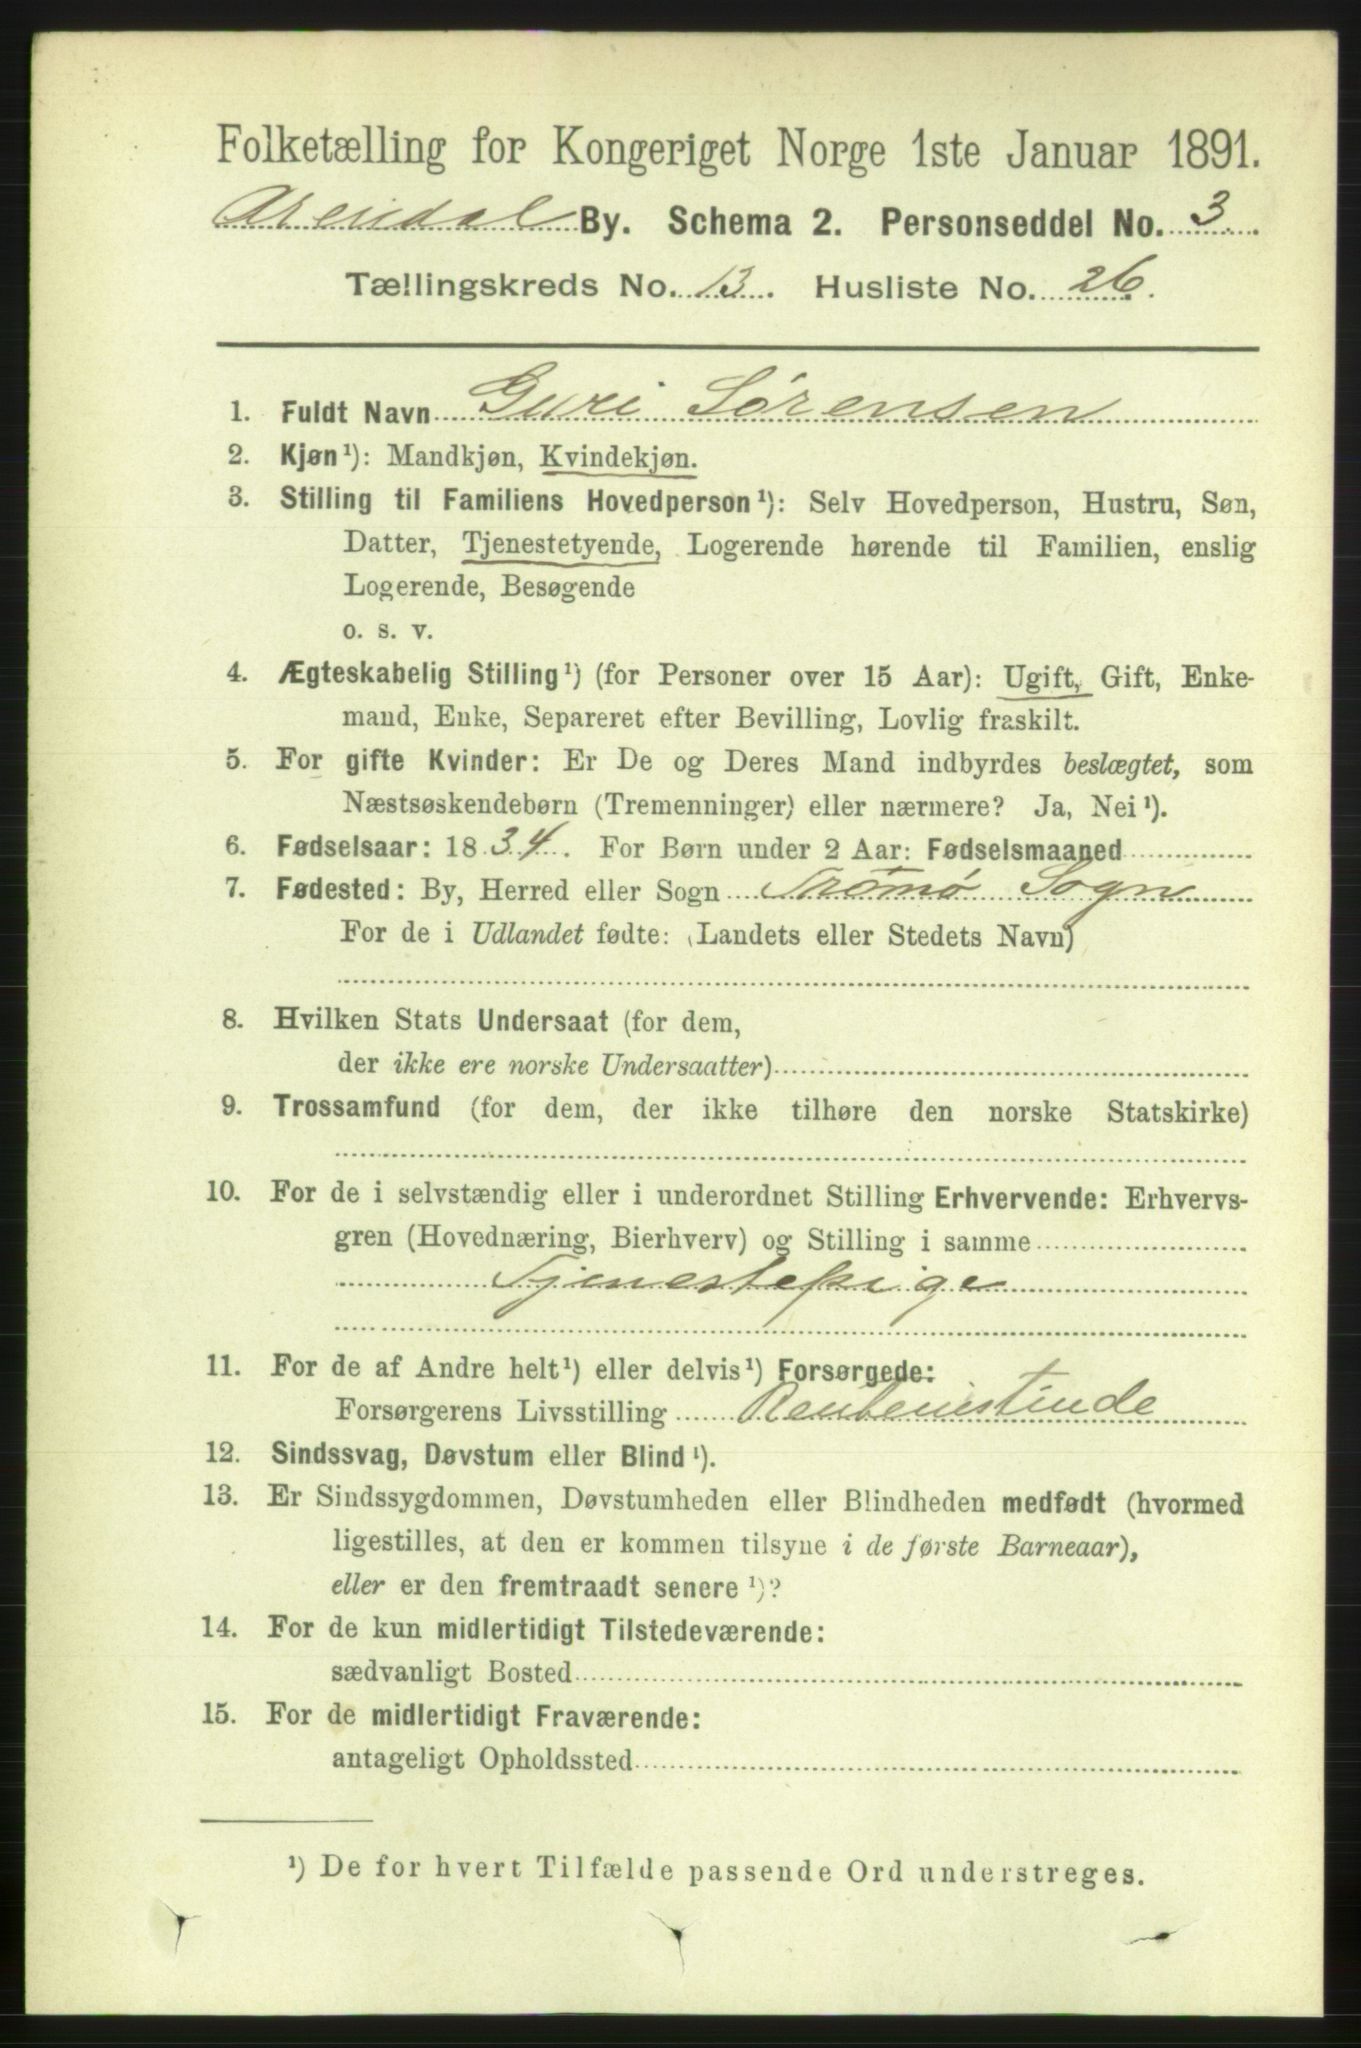 Folketælling for Kongeriget Norge 1ste Januar 1891.
Arendal By. Schema 2. Personseddel No. 3.
Tællingskreds No. 13. Husliste No. 26.
1. Fuldt Navn Guri Sørensen
2. Kjøn¹): Mandkjøn, Kvindekjøn.
3. Stilling til Familiens Hovedperson¹): Selv Hovedperson, Hustru, Søn,
Datter, Tjenestetyende, Logerende hørende til Familien, enslig
Logerende, Besøgende
o. s. v.
4. Ægteskabelig Stilling¹) (for Personer over 15 Aar): Ugift, Gift, Enke-
mand, Enke, Separeret efter Bevilling, Lovlig fraskilt.
5. For gifte Kvinder: Er De og Deres Mand indbyrdes beslægtet, som
Næstsøskendebørn (Tremenninger) eller nærmere? Ja, Nei¹).
6. Fødselsaar: 1834. For Børn under 2 Aar: Fødselsmaaned
7. Fødested: By, Herred eller Sogn Tromø Sogn
For de i Udlandet fødte: (Landets eller Stedets Navn)
8. Hvilken Stats Undersaat (for dem,
der ikke ere norske Undersaatter)
9. Trossamfund (for dem, der ikke tilhøre den norske Statskirke)
10. For de i selvstændig eller i underordnet Stilling Erhvervende: Erhvervs-
gren (Hovednæring, Bierhverv) og Stilling i samme
Tjenestepige
11. For de af Andre helt¹) eller delvis¹) Forsørgede:
Forsørgerens Livsstilling
12. Sindssvag, Døvstum eller Blind¹).
13. Er Sindssygdommen, Døvstumheden eller Blindheden medfødt (hvormed
ligestilles, at den er kommen tilsyne i de første Barneaar),
eller er den fremtraadt senere¹)?
14. For de kun midlertidigt Tilstedeværende:
sædvanligt Bosted
15. For de midlertidigt Fraværende:
antageligt Opholdssted
¹) De for hvert Tilfælde passende Ord understreges.